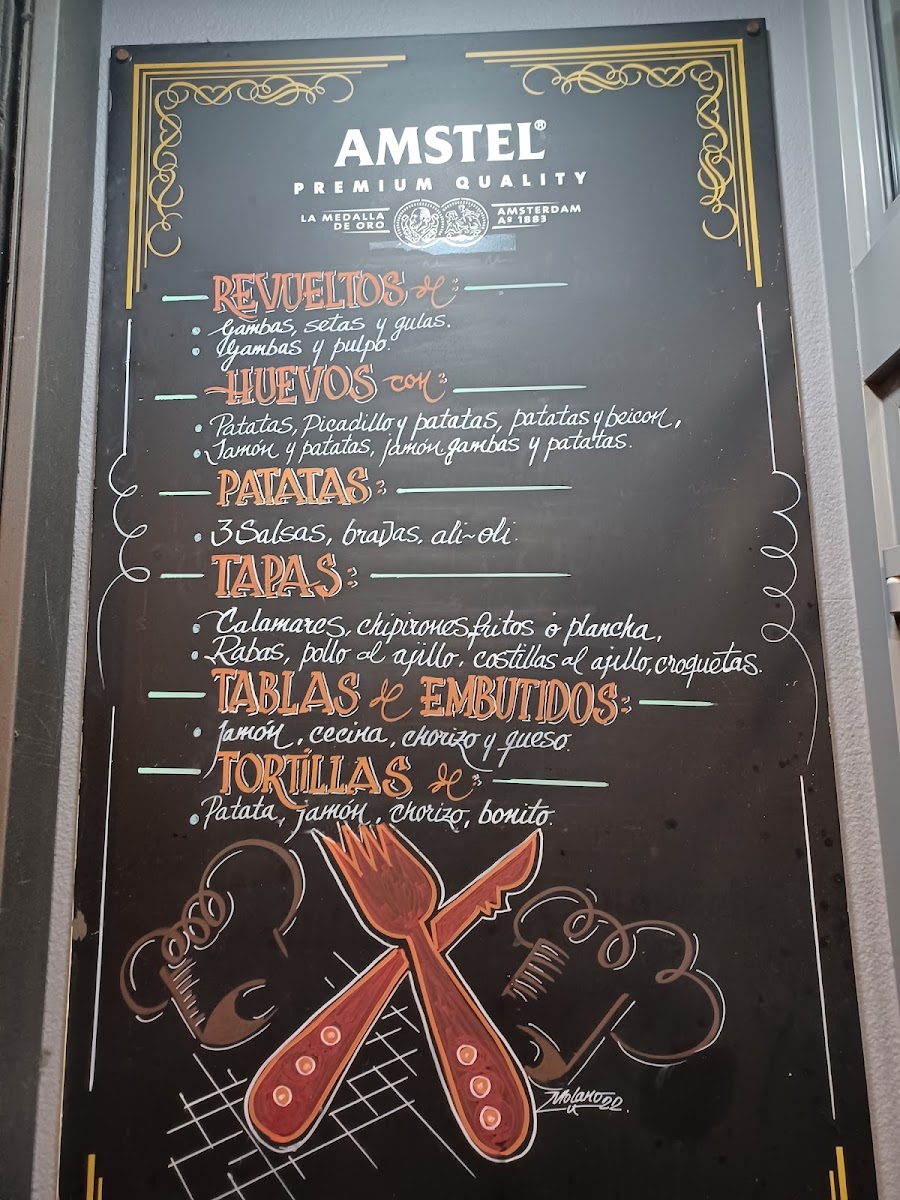 AMSTEL®
PREMIUM QUALITY
LA MEDALLA DE ORO
AMSTERDAM Aº 1883
REVUELTOS de:
• Gambas, setas y gulas.
• Gambas y pulpo.
HUEVOS con:
• Patatas, Picadillo y patatas, patatas y beicon,
• Jamón y patatas, jamón gambas y patatas.
PATATAS:
• 3 Salsas, bravas, ali-oli.
TAPAS:
• Calamares, chipirones, fritos ó plancha,
• Rabas, pollo al ajillo, costillas al ajillo, croquetas.
TABLAS de EMBUTIDOS:
• Jamón, cecina, chorizo y queso.
TORTÍLLAS de:
• Patata, jamón, chorizo, bonito.
Molano 22.